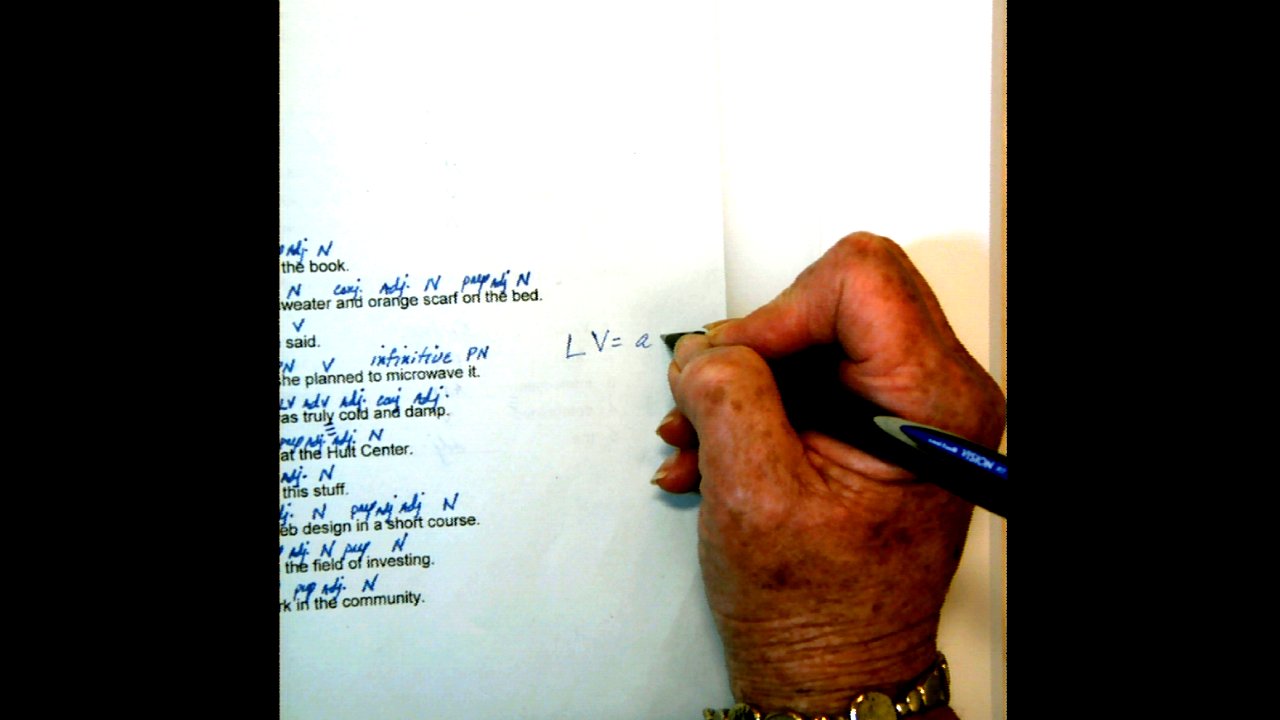 Adj. N
the book.
N conj. Adj. N prep Adj N
weater and orange scarf on the bed.
V
said.
LV = a
PN V infinitive PN
he planned to microwave it.
LV Adv Adj. conj Adj.
as truly cold and damp.
prep Adj. Adj. N
at the Hult Center.
Adj. N
this stuff.
j. N prep Adj Adj N
eb design in a short course.
Adj. N prep N
the field of investing.
prep Adj. N
rk in the community.
VISION